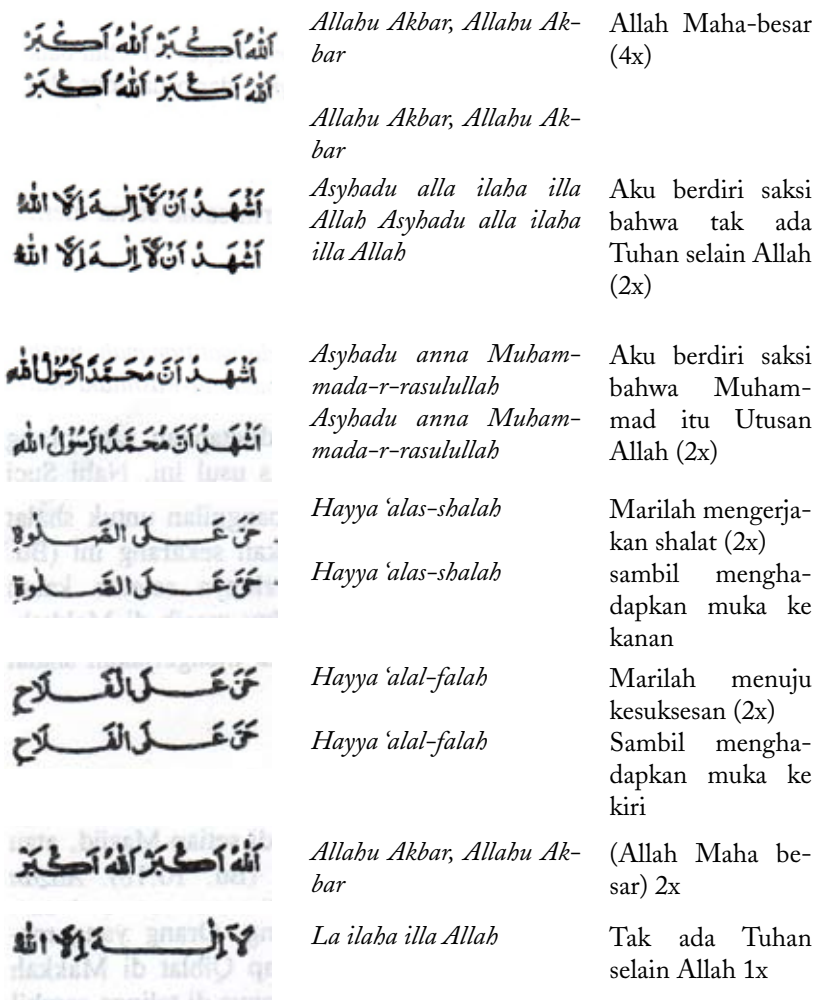 اَللهُ اَكْبَرْ اَللهُ اَكْبَرْ
اَللهُ اَكْبَرْ اَللهُ اَكْبَرْ
Allahu Akbar, Allahu Ak-
bar
Allahu Akbar, Allahu Ak-
bar
Allah Maha-besar
(4x)
اَشْهَدُ اَنْ لَّآاِلٰهَ اِلَّا اللهُ
اَشْهَدُ اَنْ لَّآاِلٰهَ اِلَّا اللهُ
Asyhadu alla ilaha illa
Allah Asyhadu alla ilaha
illa Allah
Aku berdiri saksi
bahwa tak ada
Tuhan selain Allah
(2x)
اَشْهَدُ اَنَّ مُحَمَّدًا رَّسُوْلُ اللهِ
اَشْهَدُ اَنَّ مُحَمَّدًا رَّسُوْلُ اللهِ
Asyhadu anna Muham-
mada-r-rasulullah
Asyhadu anna Muham-
mada-r-rasulullah
Aku berdiri saksi
bahwa Muham-
mad itu Utusan
Allah (2x)
حَىَّ عَلَى الصَّلٰوةِ
حَىَّ عَلَى الصَّلٰوةِ
Hayya ‘alas-shalah
Hayya ‘alas-shalah
Marilah mengerja-
kan shalat (2x)
sambil mengha-
dapkan muka ke
kanan
حَىَّ عَلَى الْفَلَاحِ
حَىَّ عَلَى الْفَلَاحِ
Hayya ‘alal-falah
Hayya ‘alal-falah
Marilah menuju
kesuksesan (2x)
Sambil mengha-
dapkan muka ke
kiri
اَللهُ اَكْبَرْ اَللهُ اَكْبَرْ
Allahu Akbar, Allahu Ak-
bar
(Allah Maha be-
sar) 2x
لَآاِلٰهَ اِلَّا اللهُ
La ilaha illa Allah
Tak ada Tuhan
selain Allah 1x